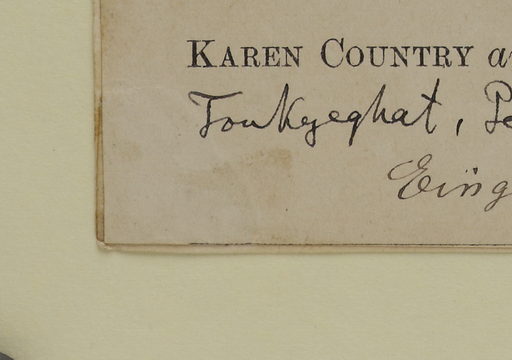 KAREN COUNTRY a
Toukyeghat, Pe
Eing